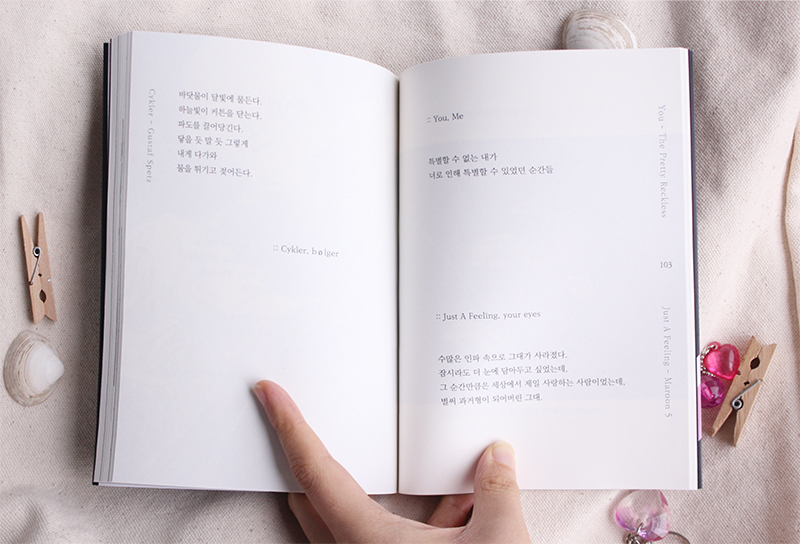 Cykler - Gustaf Spetz
바닷물이 달빛에 물든다.
하늘빛이 커튼을 닫는다.
파도를 끌어당긴다.
닿을 듯 말 듯 그렇게
내게 다가와
물을 튀기고 젖어든다.
:: Cykler, bølger
:: You, Me
특별할 수 없는 내가
너로 인해 특별할 수 있었던 순간들
You - The Pretty Reckless
103
:: Just A Feeling, your eyes
수많은 인파 속으로 그대가 사라졌다.
잠시라도 더 눈에 담아두고 싶었는데,
그 순간만큼은 세상에서 제일 사랑하는 사람이었는데,
벌써 과거형이 되어버린 그대.
Just A Feeling - Maroon 5